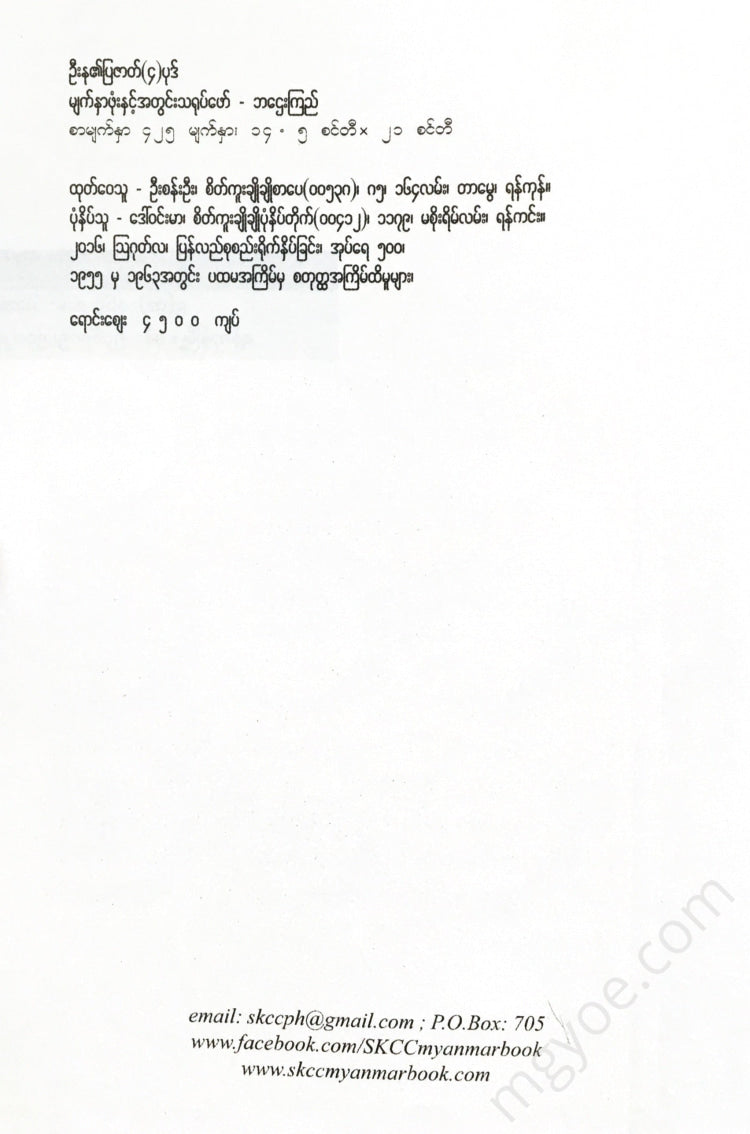 ဦးနု၏ပြဇာတ်(၄)ပုဒ်
မျက်နှာဖုံးနှင့်အတွင်းသရုပ်ဖော် - ဘဌေးကြည်
စာမျက်နှာ ၄၂၅ မျက်နှာ၊ ၁၄ . ၅ စင်တီ× ၂၁ စင်တီ
ထုတ်ဝေသူ - ဦးစန်းဦး၊ စိတ်ကူးချိုချိုစာပေ(၀၀၅၃၈)၊ ဂ၅၊ ၁၆၄လမ်း၊ တာမွေ၊ ရန်ကုန်။
ပုံနှိပ်သူ - ဒေါ်ဝင်းမာ၊ စိတ်ကူးချိုချိုပုံနှိပ်တိုက်(၀၀၄၁၂)၊ ၁၁၇၉၊ မစိုးရိမ်လမ်း၊ ရန်ကင်း။
၂၀၁၆၊ ဩဂုတ်လ၊ ပြန်လည်စုစည်းရိုက်နှိပ်ခြင်း၊ အုပ်ရေ ၅၀၀၊
၁၉၅၅ မှ ၁၉၆၃အတွင်း ပထမအကြိမ်မှ စတုတ္ထအကြိမ်ထိမူများ၊
ရောင်းဈေး ၄ ၅ ၀ ၀ ကျပ်
email: skccph@gmail.com ; P.O.Box: 705
www.facebook.com/SKCCmyanmarbook
www.skccmyanmarbook.com
mgyoe.com